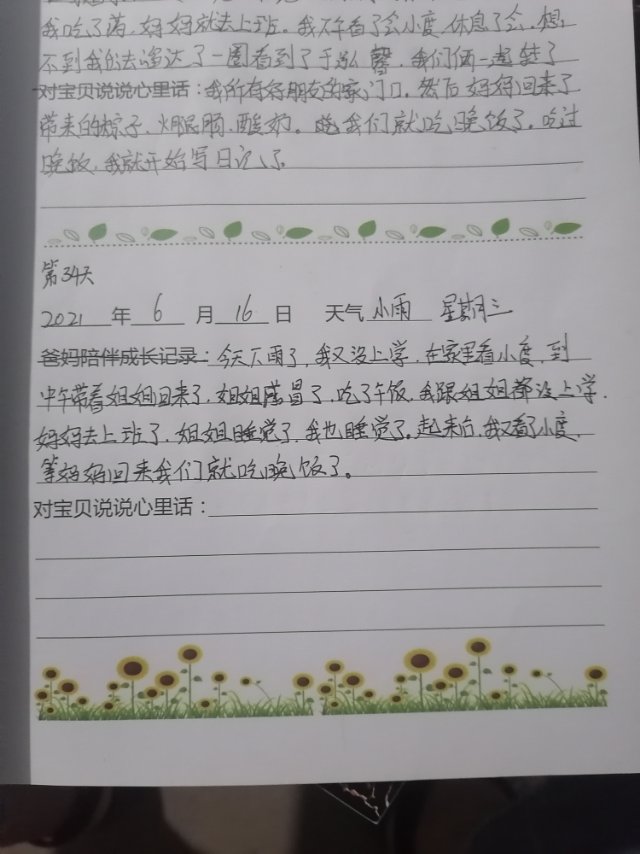 我吃了药，妈妈就去上班。我下午看了会小度，休息了会，想
不到我出去溜达了一圈看到了于泓馨，我们俩一起转了
对宝贝说说心里话：我所有好朋友的家门口。然后妈妈回来了
带来的粽子、火腿肠、酸奶。我们就吃晚饭了。吃过
晚饭，我就开始写日记了
第34天
2021 年 6 月 16 日 天气 小雨 星期三
爸妈陪伴成长记录：今天下雨了，我又没上学，在家里看小度，到
中午带着姐姐回来了，姐姐感冒了，吃了午饭，我跟姐姐都没上学，
妈妈去上班了，姐姐睡觉了，我也睡觉了。起来后，我又看了小度，
等妈妈回来我们就吃晚饭了。
对宝贝说说心里话：